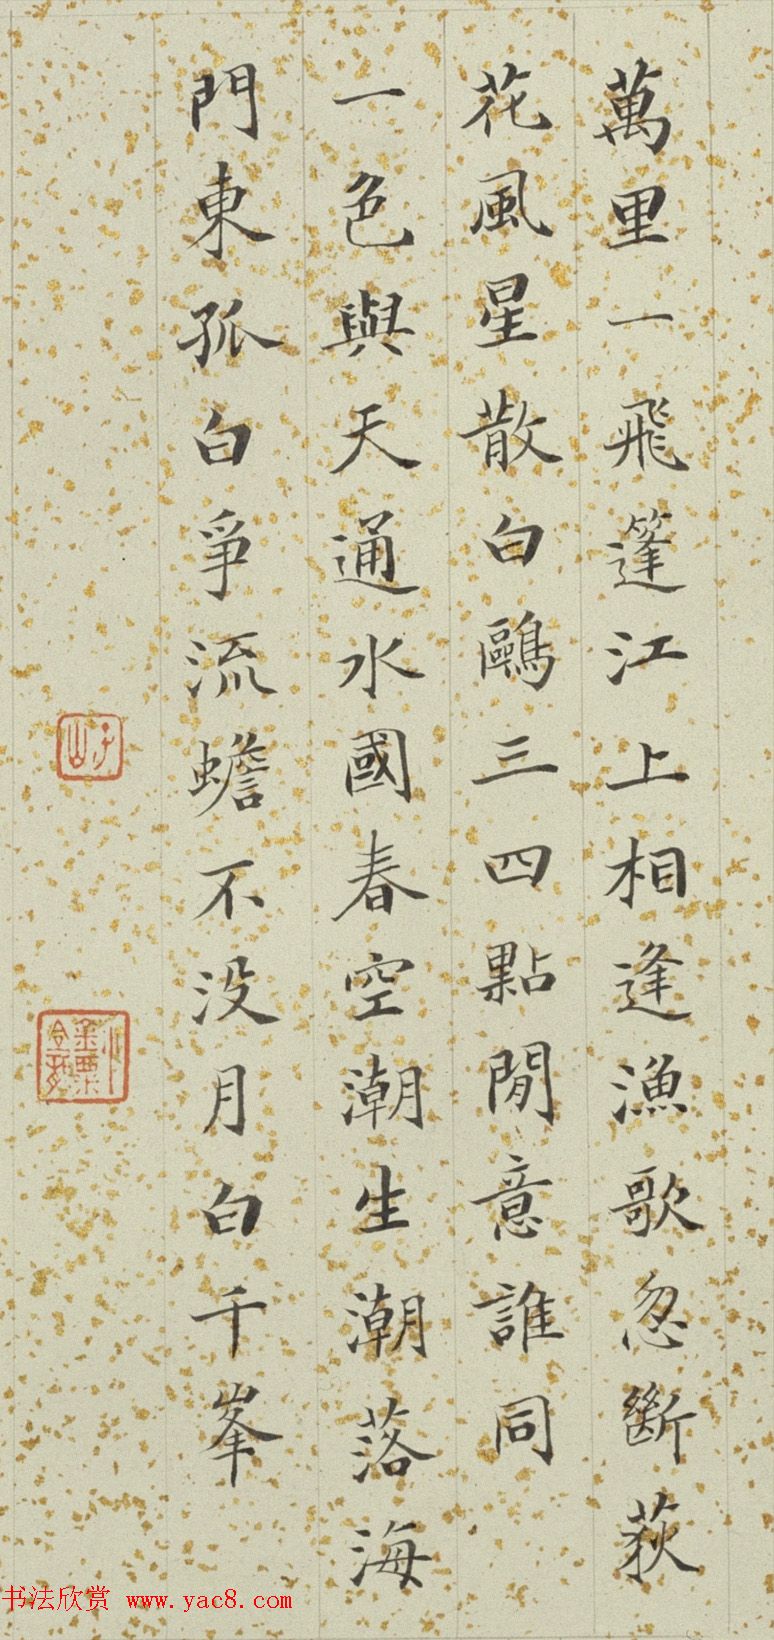 萬里一飛篷江上相逢漁歌忽斷荻
花風星散白鷗三四點閒意誰同
一色與天通水國春空潮生潮落海
門東孤白爭流蟾不没月白千峯
子山
书法欣赏 www.yac8.com